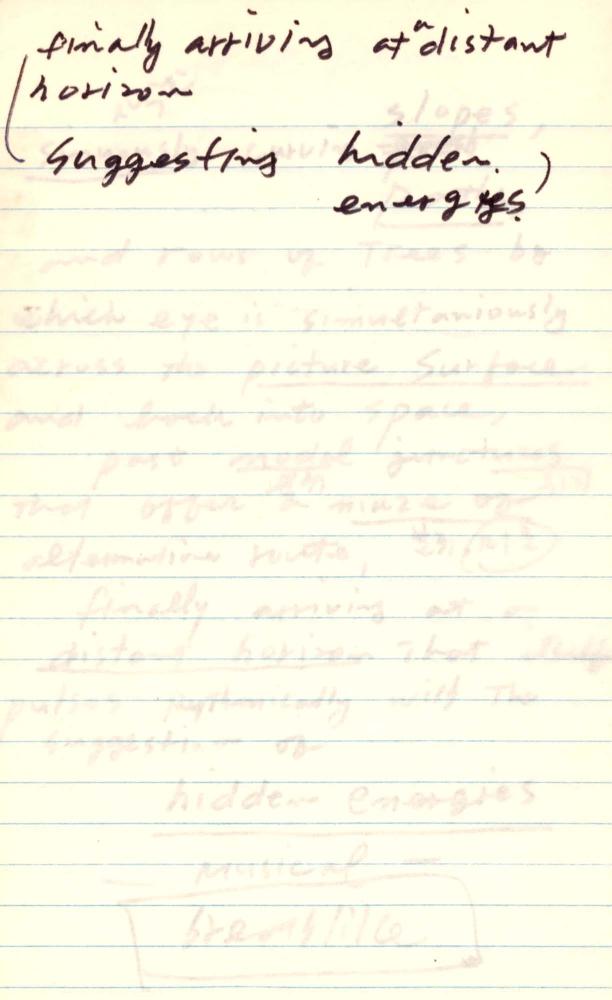 finally arriving at a distant
horizon
suggesting hidden
energies
slopes,
and rows of Trees by
which eye is simultaniously
across the picture Surface
and back into space,
past junctures
that offer a maze of
alternative route,
finally arriving at a
distant horizon That
pulses rythmically with The
suggestion of
hidden energies
musical —
breath like